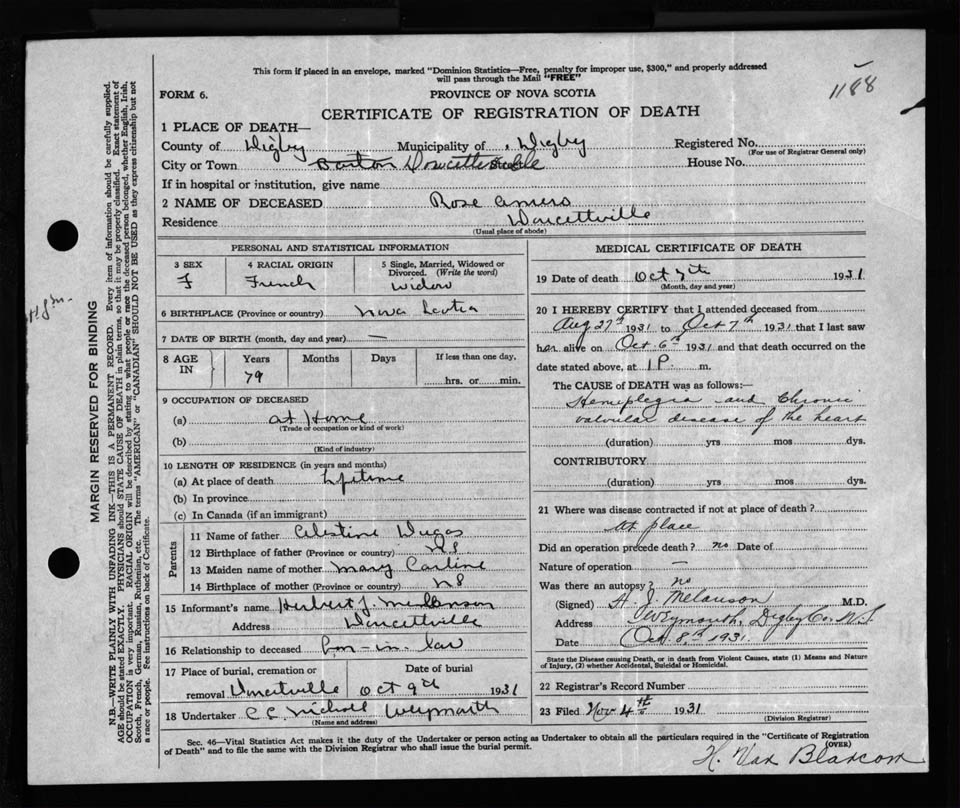 This form if placed in an envelope, marked "Dominion Statistics—Free, penalty for improper use, $300," and properly addressed
will pass through the Mail "FREE"
1188
FORM 6.
PROVINCE OF NOVA SCOTIA
CERTIFICATE OF REGISTRATION OF DEATH
1 PLACE OF DEATH—
County of Digby Municipality of Digby Registered No.
(For use of Registrar General only)
City or Town Barton Doucetteville House No.
If in hospital or institution, give name
2 NAME OF DECEASED Rose Amero
Residence Doucettville
(Usual place of abode)
PERSONAL AND STATISTICAL INFORMATION
3 SEX F
4 RACIAL ORIGIN French
5 Single, Married, Widowed or Divorced. (Write the word) widow
6 BIRTHPLACE (Province or country) Nova Scotia
7 DATE OF BIRTH (month, day and year) —
8 AGE IN Years 79 Months Days If less than one day, hrs. or min.
9 OCCUPATION OF DECEASED
(a) at Home
(Trade or occupation or kind of work)
(b)
(Kind of industry)
10 LENGTH OF RESIDENCE (in years and months)
(a) At place of death Lifetime
(b) In province
(c) In Canada (if an immigrant)
Parents
11 Name of father Celestine Dugas
12 Birthplace of father (Province or country) NS
13 Maiden name of mother Mary Carline
14 Birthplace of mother (Province or country) NS
15 Informant's name Herbert J. Melanson
Address Doucettville
16 Relationship to deceased Son-in-law
17 Place of burial, cremation or removal Doucetville Date of burial Oct 9th 1931
18 Undertaker C C Nicholl Weymouth
(Name and address)
MEDICAL CERTIFICATE OF DEATH
19 Date of death Oct 7th 1931
(Month, day and year)
20 I HEREBY CERTIFY that I attended deceased from
Aug 27th 1931 to Oct 7th 1931 that I last saw
her alive on Oct 6th 1931 and that death occurred on the
date stated above, at 1 P. m.
The CAUSE OF DEATH was as follows:—
Hemiplegia and Chronic
valvular disease of the heart
(duration) yrs mos dys.
CONTRIBUTORY
(duration) yrs mos dys.
21 Where was disease contracted if not at place of death?
At place
Did an operation precede death? no Date of
Nature of operation —
Was there an autopsy? no
(Signed) A. J. Melanson M.D.
Address Weymouth, Digby Co, N.S.
Date Oct. 8th 1931.
State the Disease causing Death, or in death from Violent Causes, state (1) Means and Nature
of Injury, (2) whether Accidental, Suicidal or Homicidal.
22 Registrar's Record Number
23 Filed Nov 4th 1931
(Division Registrar)
H. Van Blarcom
Sec. 46—Vital Statistics Act makes it the duty of the Undertaker or person acting as Undertaker to obtain all the particulars required in the "Certificate of Registration
of Death" and to file the same with the Division Registrar who shall issue the burial permit.
(OVER)
MARGIN RESERVED FOR BINDING
N.B.—WRITE PLAINLY WITH UNFADING INK—THIS IS A PERMANENT RECORD. Every item of information should be carefully supplied.
AGE should be stated EXACTLY. PHYSICIANS should STATE CAUSE OF DEATH in plain terms, so that it may be properly classified. Exact statement of
OCCUPATION is very important. RACIAL ORIGIN will be described by stating to what people or race the deceased person belonged, whether English, Irish,
Scotch, French, German, Russian, Ruthenian, etc. The terms "AMERICAN" or "CANADIAN" SHOULD NOT BE USED as they express citizenship but not
a race or people. See instructions on back of Certificate.